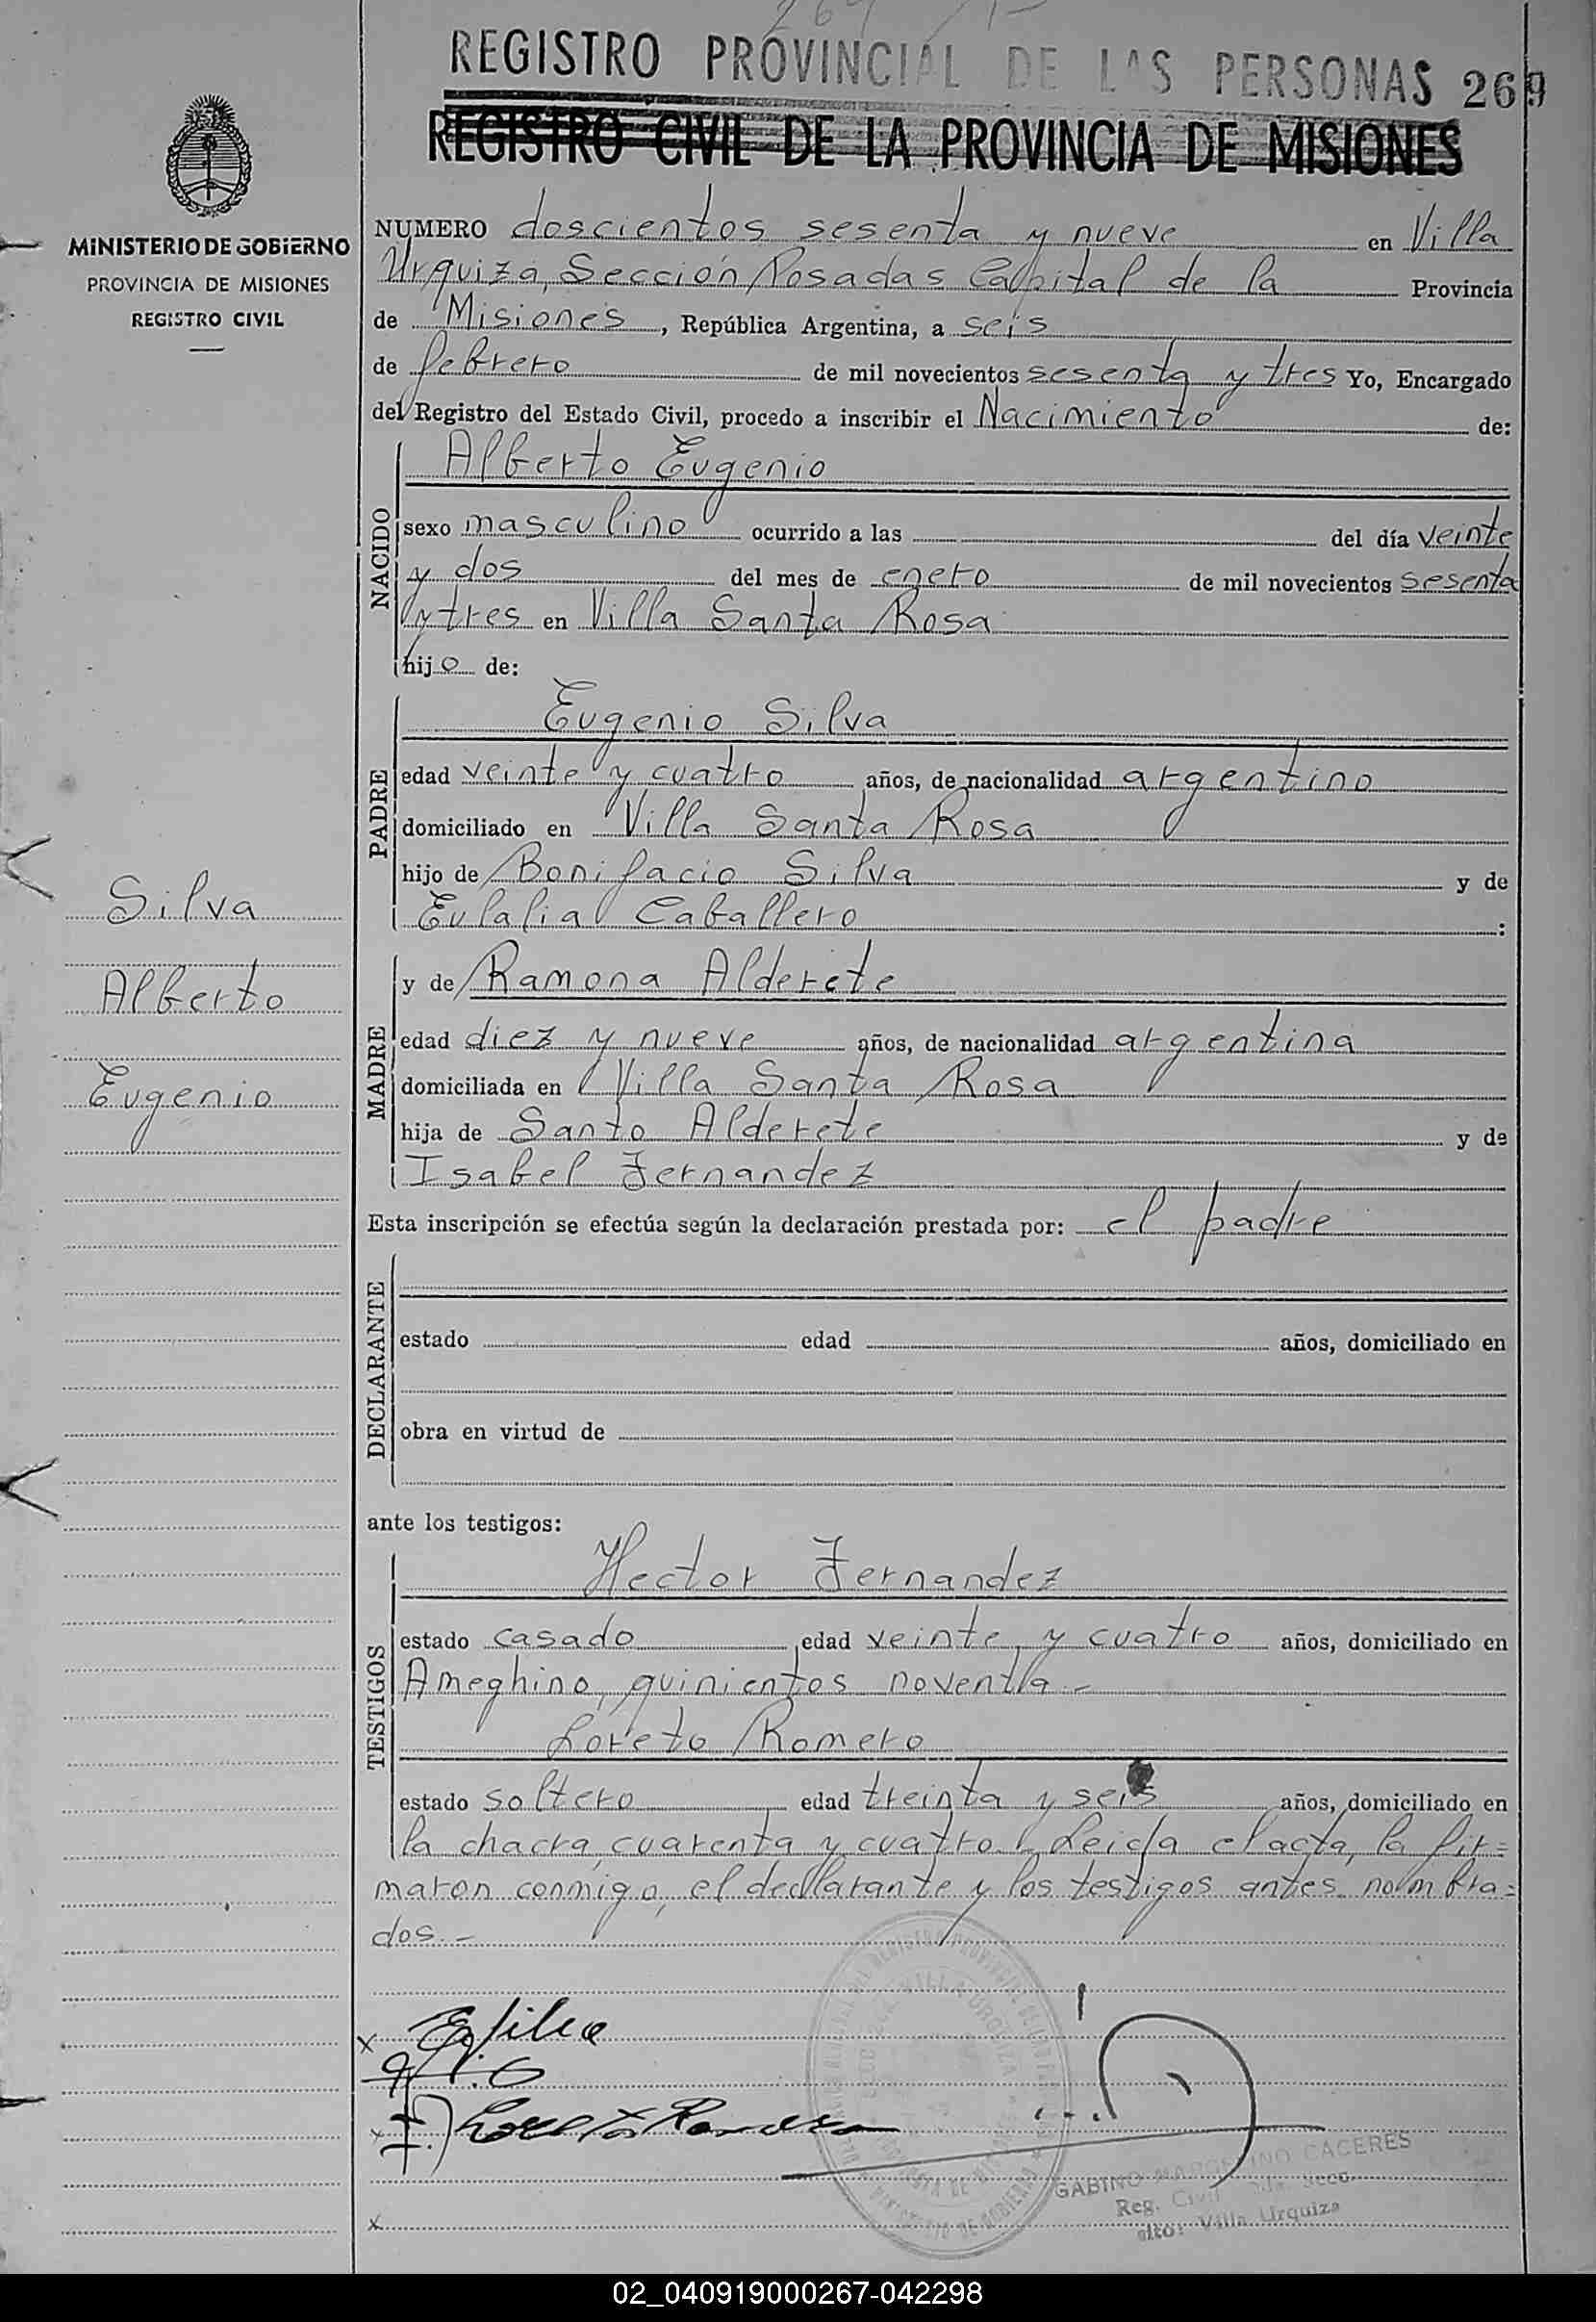 REGISTRO PROVINCIAL DE LAS PERSONAS 269
REGISTRO CIVIL DE LA PROVINCIA DE MISIONES
MINISTERIO DE GOBIERNO
PROVINCIA DE MISIONES
REGISTRO CIVIL
NUMERO doscientos sesenta y nueve en Villa
Urquiza, Sección Posadas Capital de la Provincia
de Misiones, República Argentina, a seis
de febrero de mil novecientos sesenta y tres Yo, Encargado
del Registro del Estado Civil, procedo a inscribir el Nacimiento de:
NACIDO
Alberto Eugenio
sexo masculino ocurrido a las del día veinte
y dos del mes de enero de mil novecientos sesenta
y tres en Villa Santa Rosa
hijo de:
PADRE
Eugenio Silva
edad veinte y cuatro años, de nacionalidad argentino
domiciliado en Villa Santa Rosa
hijo de Bonifacio Silva y de
Eulalia Caballero :
Silva
Alberto
Eugenio
MADRE
y de Ramona Alderete
edad diez y nueve años, de nacionalidad argentina
domiciliada en Villa Santa Rosa
hija de Santo Alderete y de
Isabel Fernandez
Esta inscripción se efectúa según la declaración prestada por: el padre
DECLARANTE
estado edad años, domiciliado en
obra en virtud de
ante los testigos:
TESTIGOS
Hector Fernandez
estado casado edad veinte y cuatro años, domiciliado en
Ameghino, quinientos noventa -
Loreto Romero
estado soltero edad treinta y seis años, domiciliado en
la chacra, cuarenta y cuatro. Leida el acta, la fir=
maron conmigo, el declarante y los testigos antes nombra=
dos.-
Loreto Romero
GABINO MARCELINO CACERES
Reg. Civil Secc.
Villa Urquiza
02_040919000267-042298